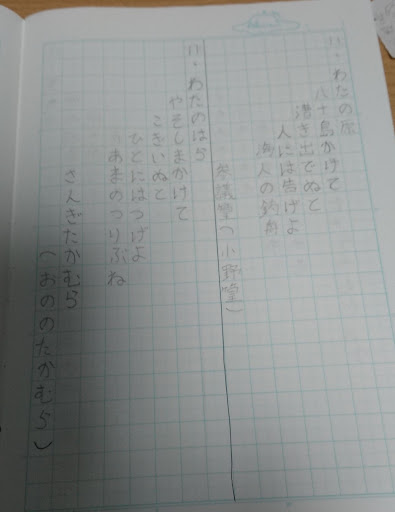 11・わたの原
八十島かけて
漕き出でぬと
人には告げよ
海人の釣舟
参議篁（小野篁）
11・わたのはら
やそしまかけて
こきいぬと
ひとにはつげよ
あまのつりぶね
さんぎたかむら
（おののたかむら）